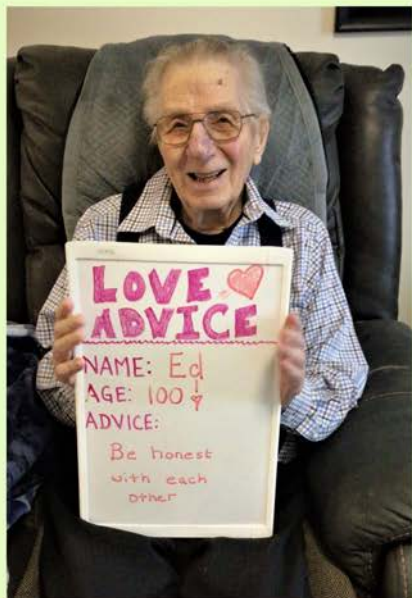 LOVE
ADVICE
NAME: Ed
AGE: 100!
ADVICE:
Be honest
with each
other